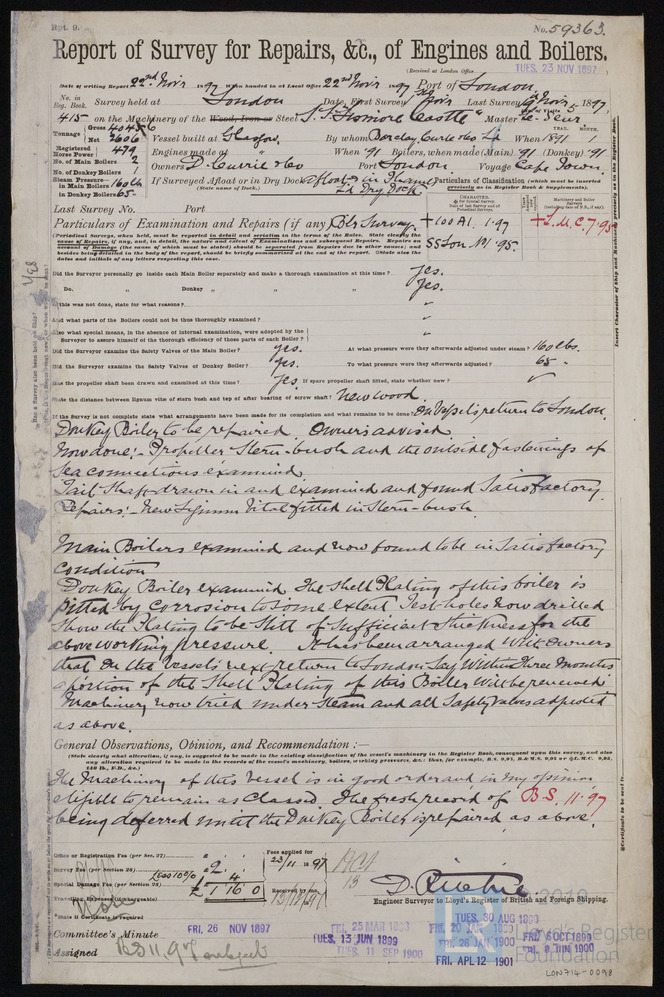 Rpt. 9.
No. 59363.
Report of Survey for Repairs, &c., of Engines and Boilers.
(Received at London Office
TUES. 23 NOV 1897
Date of writing Report 22nd Novr 1897 When handed in at Local Office 22nd Novr 1897 Port of London
No. in Reg. Book. Survey held at London Date, First Survey Novr Last Survey Novr 1897
415 on the Machinery of the Wood, Iron or Steel S.S. Master Le Seur
Tonnage Gross 4045.6 Net 2606 Vessel built at Glasgow By whom Barclay Curle & Co Ld When 1891
Registered Horse Power 479 Engines made at " When '91 Boilers, when made (Main) '91 (Donkey) '91
No. of Main Boilers 2 Owners D. Currie & Co Port London Voyage Cape Town
No. of Donkey Boilers 1
Steam Pressure in Main Boilers 160 lb If Surveyed Afloat or in Dry Dock Afloat &
in Donkey Boilers 65 (State name of Dock.) Dry Dock
Particulars of Classification (which must be inserted precisely as in Register Book & Supplements).
Last Survey No. Port
Particulars of Examination and Repairs (if any) Blr Survey
+100A1. 1.97
SS Lon No 1 95
+L.M.C. 7.95
Did the Surveyor personally go inside each Main Boiler separately and make a thorough examination at this time? Yes.
Do. " Donkey " " " Yes.
If this was not done, state for what reasons? "
And what parts of the Boilers could not be thus thoroughly examined? "
Also what special means, in the absence of internal examination, were adopted by the
Surveyor to assure himself of the thorough efficiency of those parts of each Boiler? "
Did the Surveyor examine the Safety Valves of the Main Boiler? yes. At what pressure were they afterwards adjusted under steam? 160 lbs.
Did the Surveyor examine the Safety Valves of Donkey Boiler? yes. To what pressure were they afterwards adjusted? 65 "
Has the propeller shaft been drawn and examined at this time? yes. If spare propeller shaft fitted, state whether new?
State the distance between lignum vitæ of stern bush and top of after bearing of screw shaft? New wood.
If the Survey is not complete state what arrangements have been made for its completion and what remains to be done On Vessels return to London.
Donkey Boiler to be repaired. Owners advised
Now done:- Propeller Stern-bush and the outside fastenings of
Sea connections examined
Tail Shaft drawn in and examined and found Satisfactory.
Repairs:- New Lignum Vitæ fitted in Stern-bush.
Main Boilers examined and now found to be in Satisfactory
condition
Donkey Boiler examined. The Shell Plating of this boiler is
pitted by corrosion to some extent Test holes now drilled
Show the Plating to be Still of Sufficient thickness for the
above working pressure. It has been arranged with Owners
that on the Vessels next return to London Say Within Three Months
a portion of the Shell Plating of this Boiler will be renewed
Machinery now tried under Steam and all Safety Valves adjusted
as above.
General Observations, Opinion, and Recommendation:—
(State clearly what alteration, if any, is suggested to be made in the existing classification of the vessel's machinery in the Register Book, consequent upon this survey, and also
any alteration required to be made in the records of the vessel's machinery, boilers, working pressure, &c.
The Machinery of this vessel is in good order and in my opinion
eligible to remain as Classed. The fresh record of B.S. 11.97
being deferred until the Donkey Boiler is repaired as above.
Office or Registration Fee (per Sec. 27)
Survey Fee (per Section 28) £ 2
Less 10% 4
Special Damage Fee (per Section 28) £ 1 16 0
Travelling Expenses (if chargeable)
Fees applied for 23/11 1897
Received by me
D. Ritchie
Engineer Surveyor to Lloyd's Register of British and Foreign Shipping.
State if Certificate is required
Committee's Minute FRI. 26 NOV 1897
Assigned
TUES. 13 JUN 1899
TUES. 11 SEP 1900
TUES. 30 AUG 1898
FRI. 26 JAN 1900
FRI. 6 OCT 1899
FRI. APL 12 1901
2019
Lloyd's Register
Foundation
LON714-0098